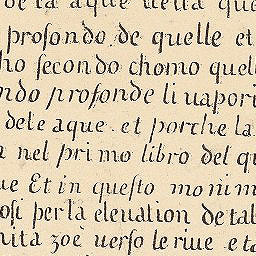 de la aque nella que
profondo de quelle et
ho secondo chomo quel
ndo profonde li uapori
dele aque et porche la
nel primo libro del q
ue Et in questo monim
osi per la eleuation de tal
nita zoè uerso le riue e ta